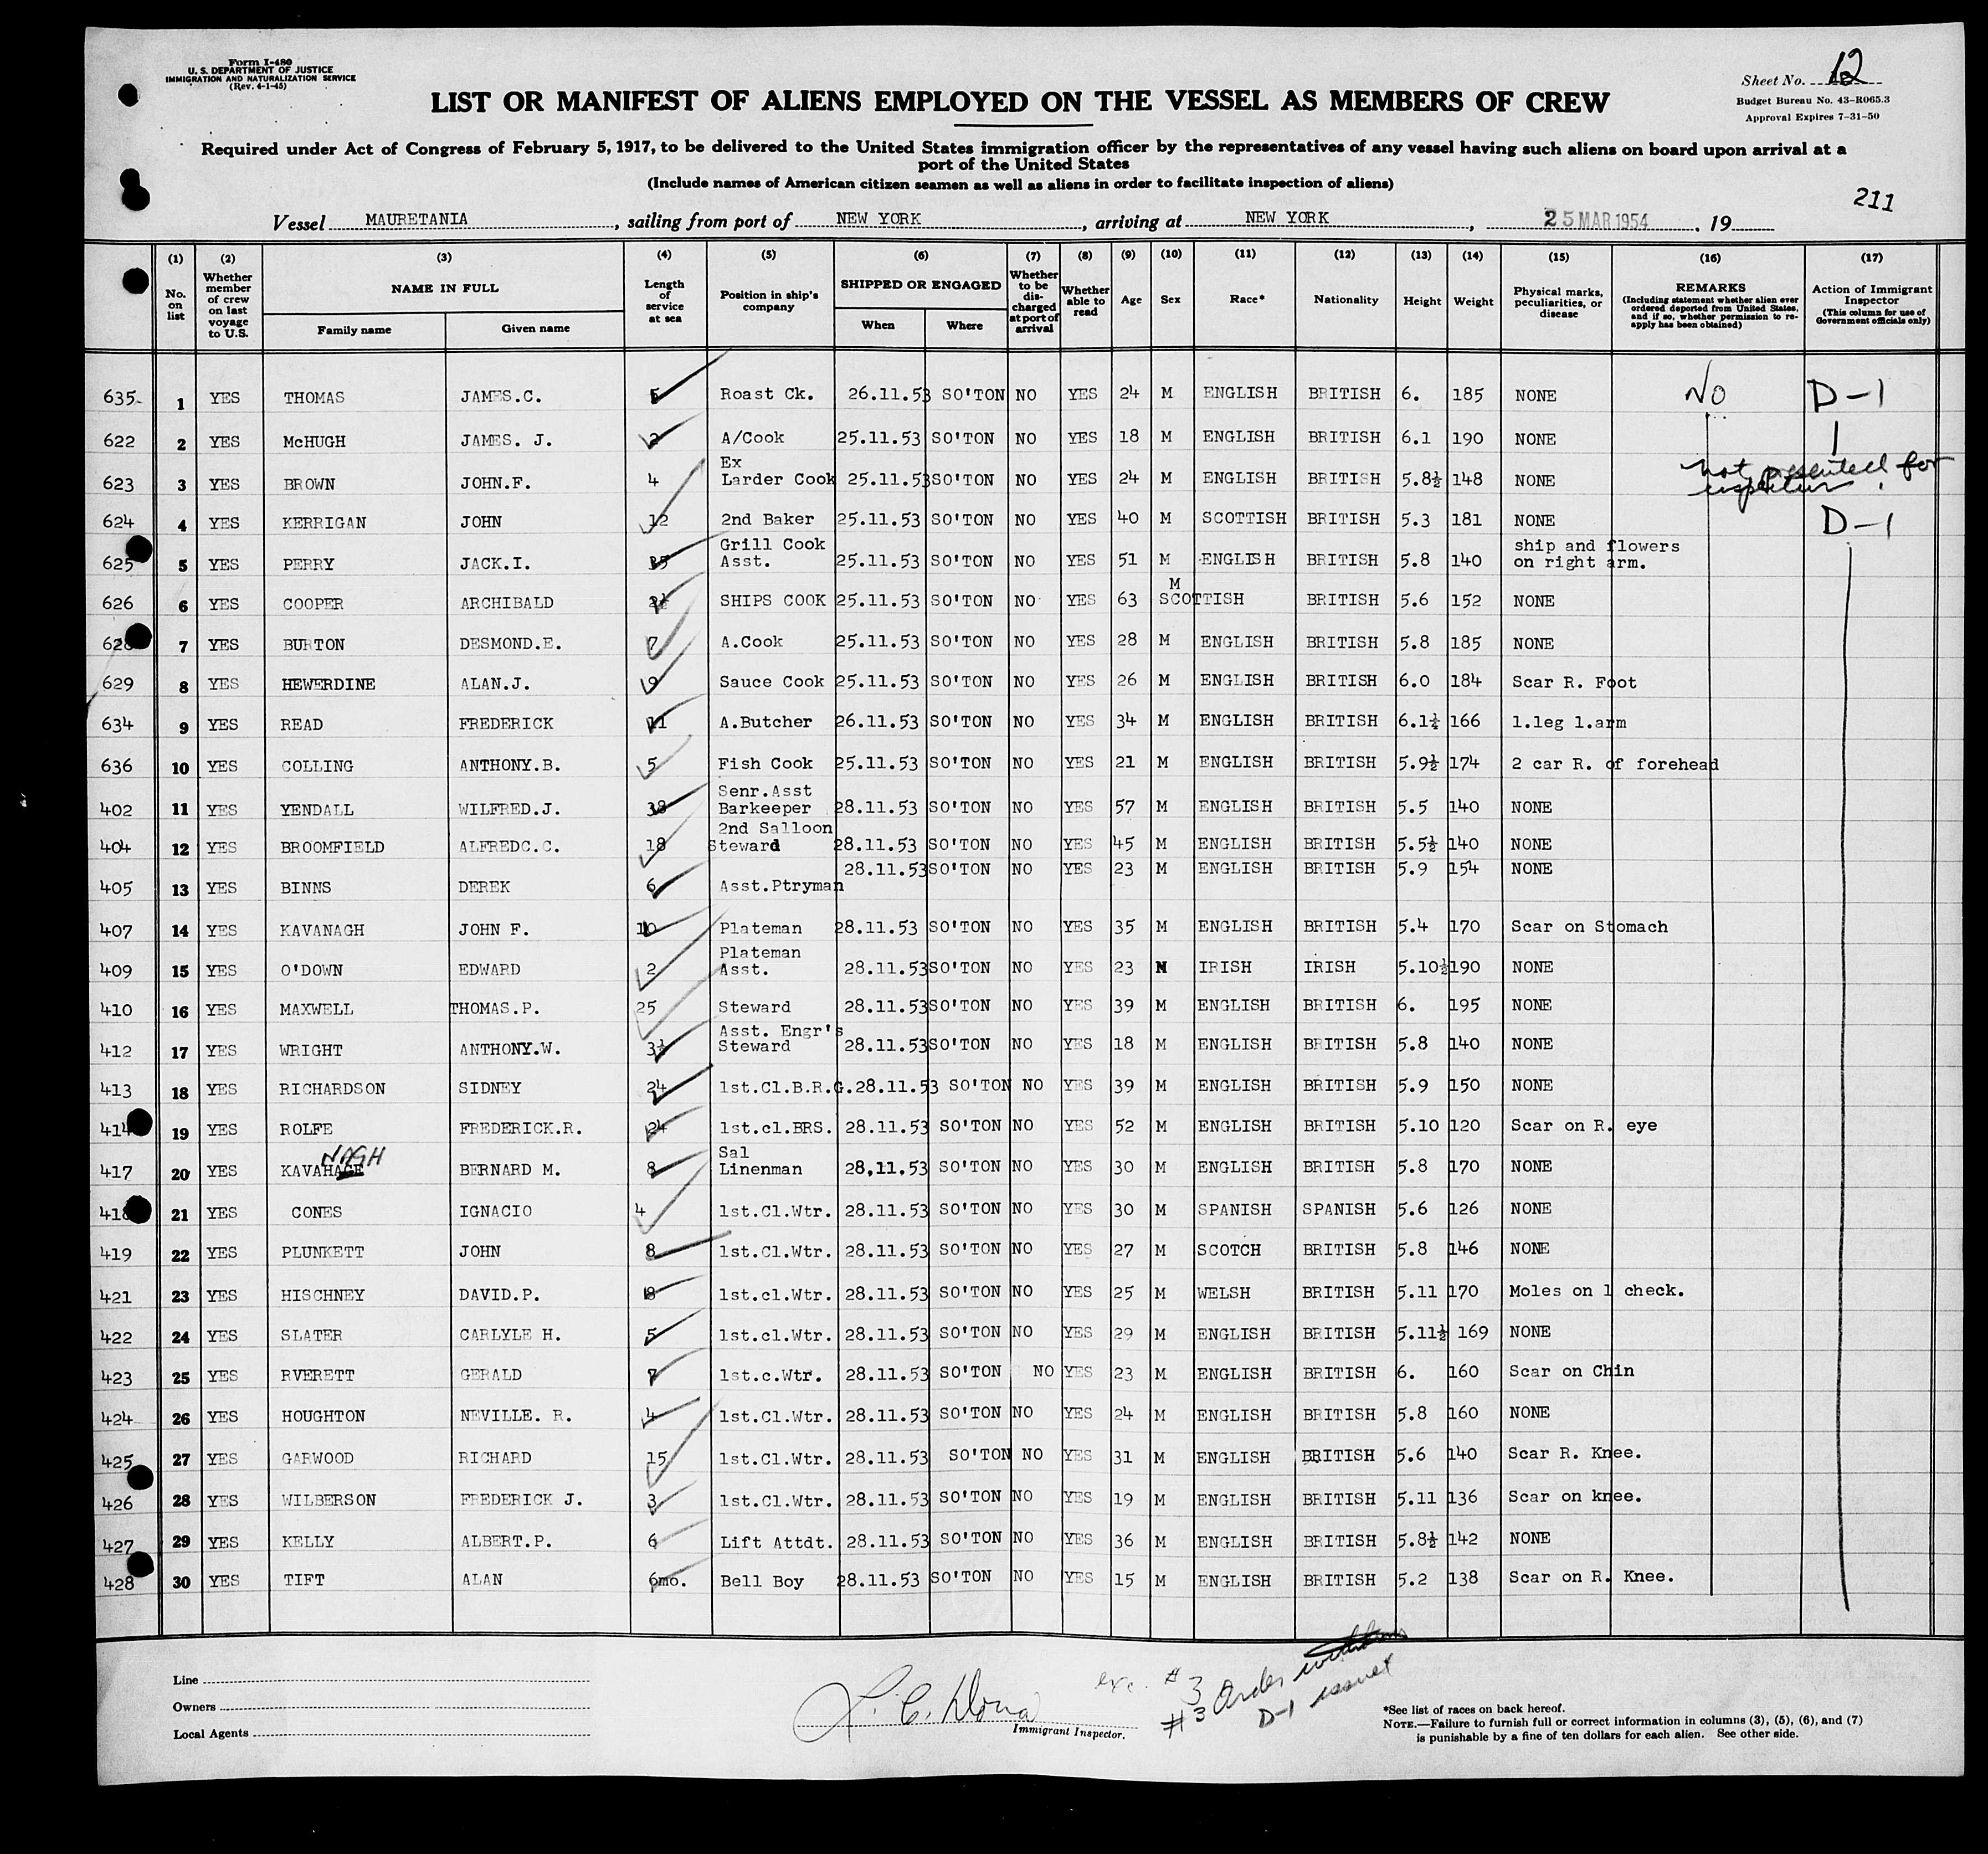 Form I-480
U. S. DEPARTMENT OF JUSTICE
IMMIGRATION AND NATURALIZATION SERVICE
(Rev. 4-1-45)
Sheet No. 12
Budget Bureau No. 43-R065.3
Approval Expires 7-31-50
LIST OR MANIFEST OF ALIENS EMPLOYED ON THE VESSEL AS MEMBERS OF CREW
Required under Act of Congress of February 5, 1917, to be delivered to the United States immigration officer by the representatives of any vessel having such aliens on board upon arrival at a
port of the United States
(Include names of American citizen seamen as well as aliens in order to facilitate inspection of aliens)
211
Vessel MAURETANIA, sailing from port of NEW YORK, arriving at NEW YORK, 25 MAR 1954, 19
(1) (2) (3) (4) (5) (6) (7) (8) (9) (10) (11) (12) (13) (14) (15) (16) (17)
No. on list Whether member of crew on last voyage to U.S. NAME IN FULL Family name Given name Length of service at sea Position in ship's company SHIPPED OR ENGAGED When Where Whether to be discharged at port of arrival Whether able to read Age Sex Race* Nationality Height Weight Physical marks, peculiarities, or disease REMARKS (Including statement whether alien ever ordered deported from United States, and if so, whether permission to re-apply has been obtained) Action of Immigrant Inspector (This column for use of Government officials only)
635 1 YES THOMAS JAMES.C. 5 Roast Ck. 26.11.53 SO'TON NO YES 24 M ENGLISH BRITISH 6. 185 NONE No D-1
622 2 YES McHUGH JAMES. J. 2 A/Cook 25.11.53 SO'TON NO YES 18 M ENGLISH BRITISH 6.1 190 NONE
623 3 YES BROWN JOHN.F. 4 Ex Larder Cook 25.11.53 SO'TON NO YES 24 M ENGLISH BRITISH 5.8½ 148 NONE not presented for inspection
624 4 YES KERRIGAN JOHN 12 2nd Baker 25.11.53 SO'TON NO YES 40 M SCOTTISH BRITISH 5.3 181 NONE D-1
625 5 YES PERRY JACK.I. 35 Grill Cook Asst. 25.11.53 SO'TON NO YES 51 M ENGLISH BRITISH 5.8 140 ship and flowers on right arm.
626 6 YES COOPER ARCHIBALD SHIPS COOK 25.11.53 SO'TON NO YES 63 M SCOTTISH BRITISH 5.6 152 NONE
628 7 YES BURTON DESMOND.E. 7 A.Cook 25.11.53 SO'TON NO YES 28 M ENGLISH BRITISH 5.8 185 NONE
629 8 YES HEWERDINE ALAN.J. 9 Sauce Cook 25.11.53 SO'TON NO YES 26 M ENGLISH BRITISH 6.0 184 Scar R. Foot
634 9 YES READ FREDERICK 11 A.Butcher 26.11.53 SO'TON NO YES 34 M ENGLISH BRITISH 6.1½ 166 l.leg l.arm
636 10 YES COLLING ANTHONY.B. 5 Fish Cook 25.11.53 SO'TON NO YES 21 M ENGLISH BRITISH 5.9½ 174 2 car R. of forehead
402 11 YES YENDALL WILFRED.J. 38 Senr.Asst Barkeeper 28.11.53 SO'TON NO YES 57 M ENGLISH BRITISH 5.5 140 NONE
404 12 YES BROOMFIELD ALFREDC.C. 18 2nd Salloon Steward 28.11.53 SO'TON NO YES 45 M ENGLISH BRITISH 5.5½ 140 NONE
405 13 YES BINNS DEREK 6 Asst.Ptryman 28.11.53 SO'TON NO YES 23 M ENGLISH BRITISH 5.9 154 NONE
407 14 YES KAVANAGH JOHN F. 10 Plateman 28.11.53 SO'TON NO YES 35 M ENGLISH BRITISH 5.4 170 Scar on Stomach
409 15 YES O'DOWN EDWARD 2 Plateman Asst. 28.11.53 SO'TON NO YES 23 M IRISH IRISH 5.10½ 190 NONE
410 16 YES MAXWELL THOMAS.P. 25 Steward 28.11.53 SO'TON NO YES 39 M ENGLISH BRITISH 6. 195 NONE
412 17 YES WRIGHT ANTHONY.W. 3½ Asst. Engr's Steward 28.11.53 SO'TON NO YES 18 M ENGLISH BRITISH 5.8 140 NONE
413 18 YES RICHARDSON SIDNEY 24 1st.Cl.B.R.G. 28.11.53 SO'TON NO YES 39 M ENGLISH BRITISH 5.9 150 NONE
414 19 YES ROLFE FREDERICK.R. 24 1st.cl.BRS. 28.11.53 SO'TON NO YES 52 M ENGLISH BRITISH 5.10 120 Scar on R. eye
417 20 YES KAVAHAGE NAGH BERNARD M. 8 Sal Linenman 28,11.53 SO'TON NO YES 30 M ENGLISH BRITISH 5.8 170 NONE
418 21 YES CONES IGNACIO 4 1st.Cl.Wtr. 28.11.53 SO'TON NO YES 30 M SPANISH SPANISH 5.6 126 NONE
419 22 YES PLUNKETT JOHN 8 1st.Cl.Wtr. 28.11.53 SO'TON NO YES 27 M SCOTCH BRITISH 5.8 146 NONE
421 23 YES HISCHNEY DAVID.P. 8 1st.cl.Wtr. 28.11.53 SO'TON NO YES 25 M WELSH BRITISH 5.11 170 Moles on l check.
422 24 YES SLATER CARLYLE H. 5 1st.cl.Wtr. 28.11.53 SO'TON NO YES 29 M ENGLISH BRITISH 5.11½ 169 NONE
423 25 YES RVERETT GERALD 1st.c.Wtr. 28.11.53 SO'TON NO YES 23 M ENGLISH BRITISH 6. 160 Scar on Chin
424 26 YES HOUGHTON NEVILLE. R. 4 1st.Cl.Wtr. 28.11.53 SO'TON NO YES 24 M ENGLISH BRITISH 5.8 160 NONE
425 27 YES GARWOOD RICHARD 15 1st.Cl.Wtr. 28.11.53 SO'TON NO YES 31 M ENGLISH BRITISH 5.6 140 Scar R. Knee.
426 28 YES WILBERSON FREDERICK J. 3 1st.Cl.Wtr. 28.11.53 SO'TON NO YES 19 M ENGLISH BRITISH 5.11 136 Scar on knee.
427 29 YES KELLY ALBERT.P. 6 Lift Attdt. 28.11.53 SO'TON NO YES 36 M ENGLISH BRITISH 5.8½ 142 NONE
428 30 YES TIFT ALAN 6mo. Bell Boy 28.11.53 SO'TON NO YES 15 M ENGLISH BRITISH 5.2 138 Scar on R. Knee.
Line
Owners
Local Agents
Immigrant Inspector.
exc. #3
#3 Order
D-1 issued
*See list of races on back hereof.
NOTE.—Failure to furnish full or correct information in columns (3), (5), (6), and (7)
is punishable by a fine of ten dollars for each alien. See other side.